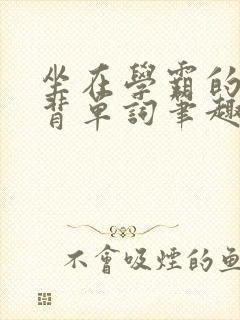 坐在學霸的
背單詞筆趣
不會吸煙的魚